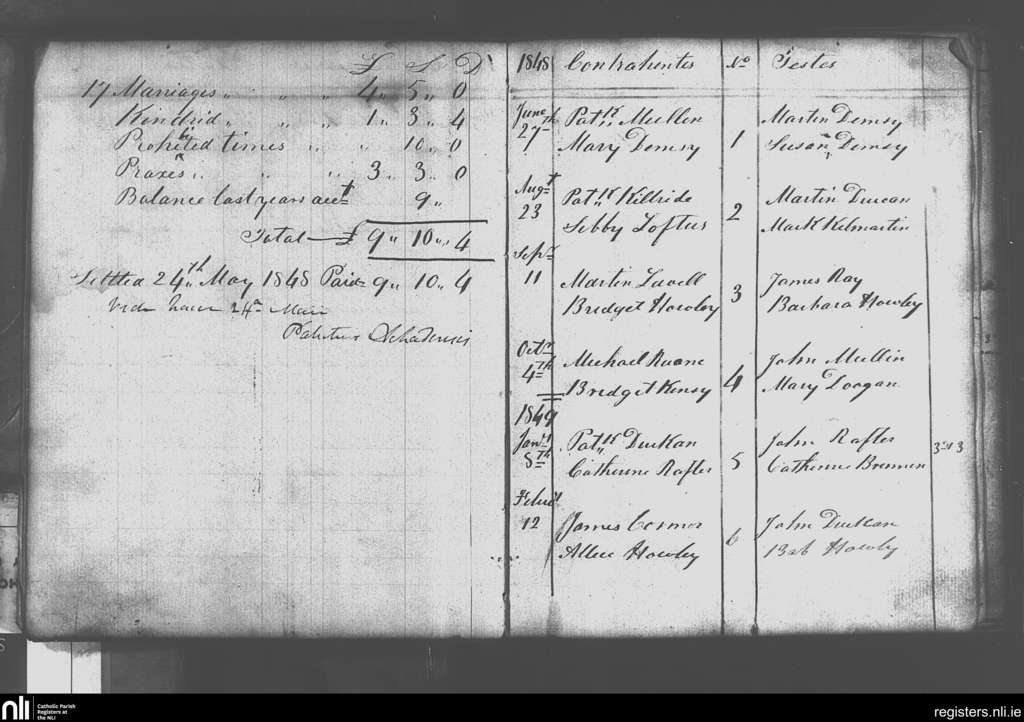 £ S D
17 Marriages „ „ „ 4„ 5„ 0
Kindrid „ „ „ 1„ 3„ 4
Prohibited times „ „ 10„ 0
Praxes „ „ „ 3„ 3„ 0
Balance last years acct 9„
Total — £ 9„ 10„ 4
Settled 24th May 1848 Paid 9„ 10„ 4
24a Maii
Patritius Achadensis
1848 Contrahentes No Testes
June 27th Patk Mullen Martin Demsy
Mary Demsy 1 Susan Demsy
Augt 23 Patk Killride Martin Durcan
Sibby Loftus 2 Mark Kilmartin
Sepr
11 Martin Lavell James Ray
Bridget Howley 3 Barbara Howley
Octr 4th Michael Ruane John Mullin
Bridget Kensy 4 Mary Loogan
1849
Jany 8th Patk Durkan John Rafter
Catherine Rafter 5 Catherine Brennen
Feby
12 James Cormor John Durkan
Allice Howley 6 Bab Howley